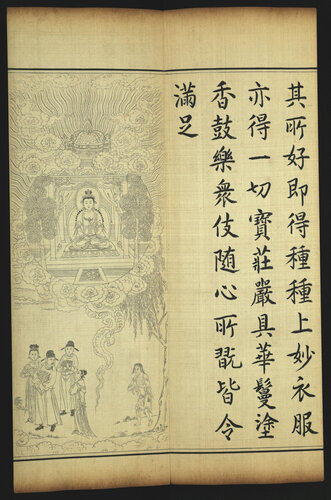 其所好即得種種上妙衣服
亦得一切寶莊嚴具華鬘塗
香鼓樂衆伎随心所翫皆令
滿足